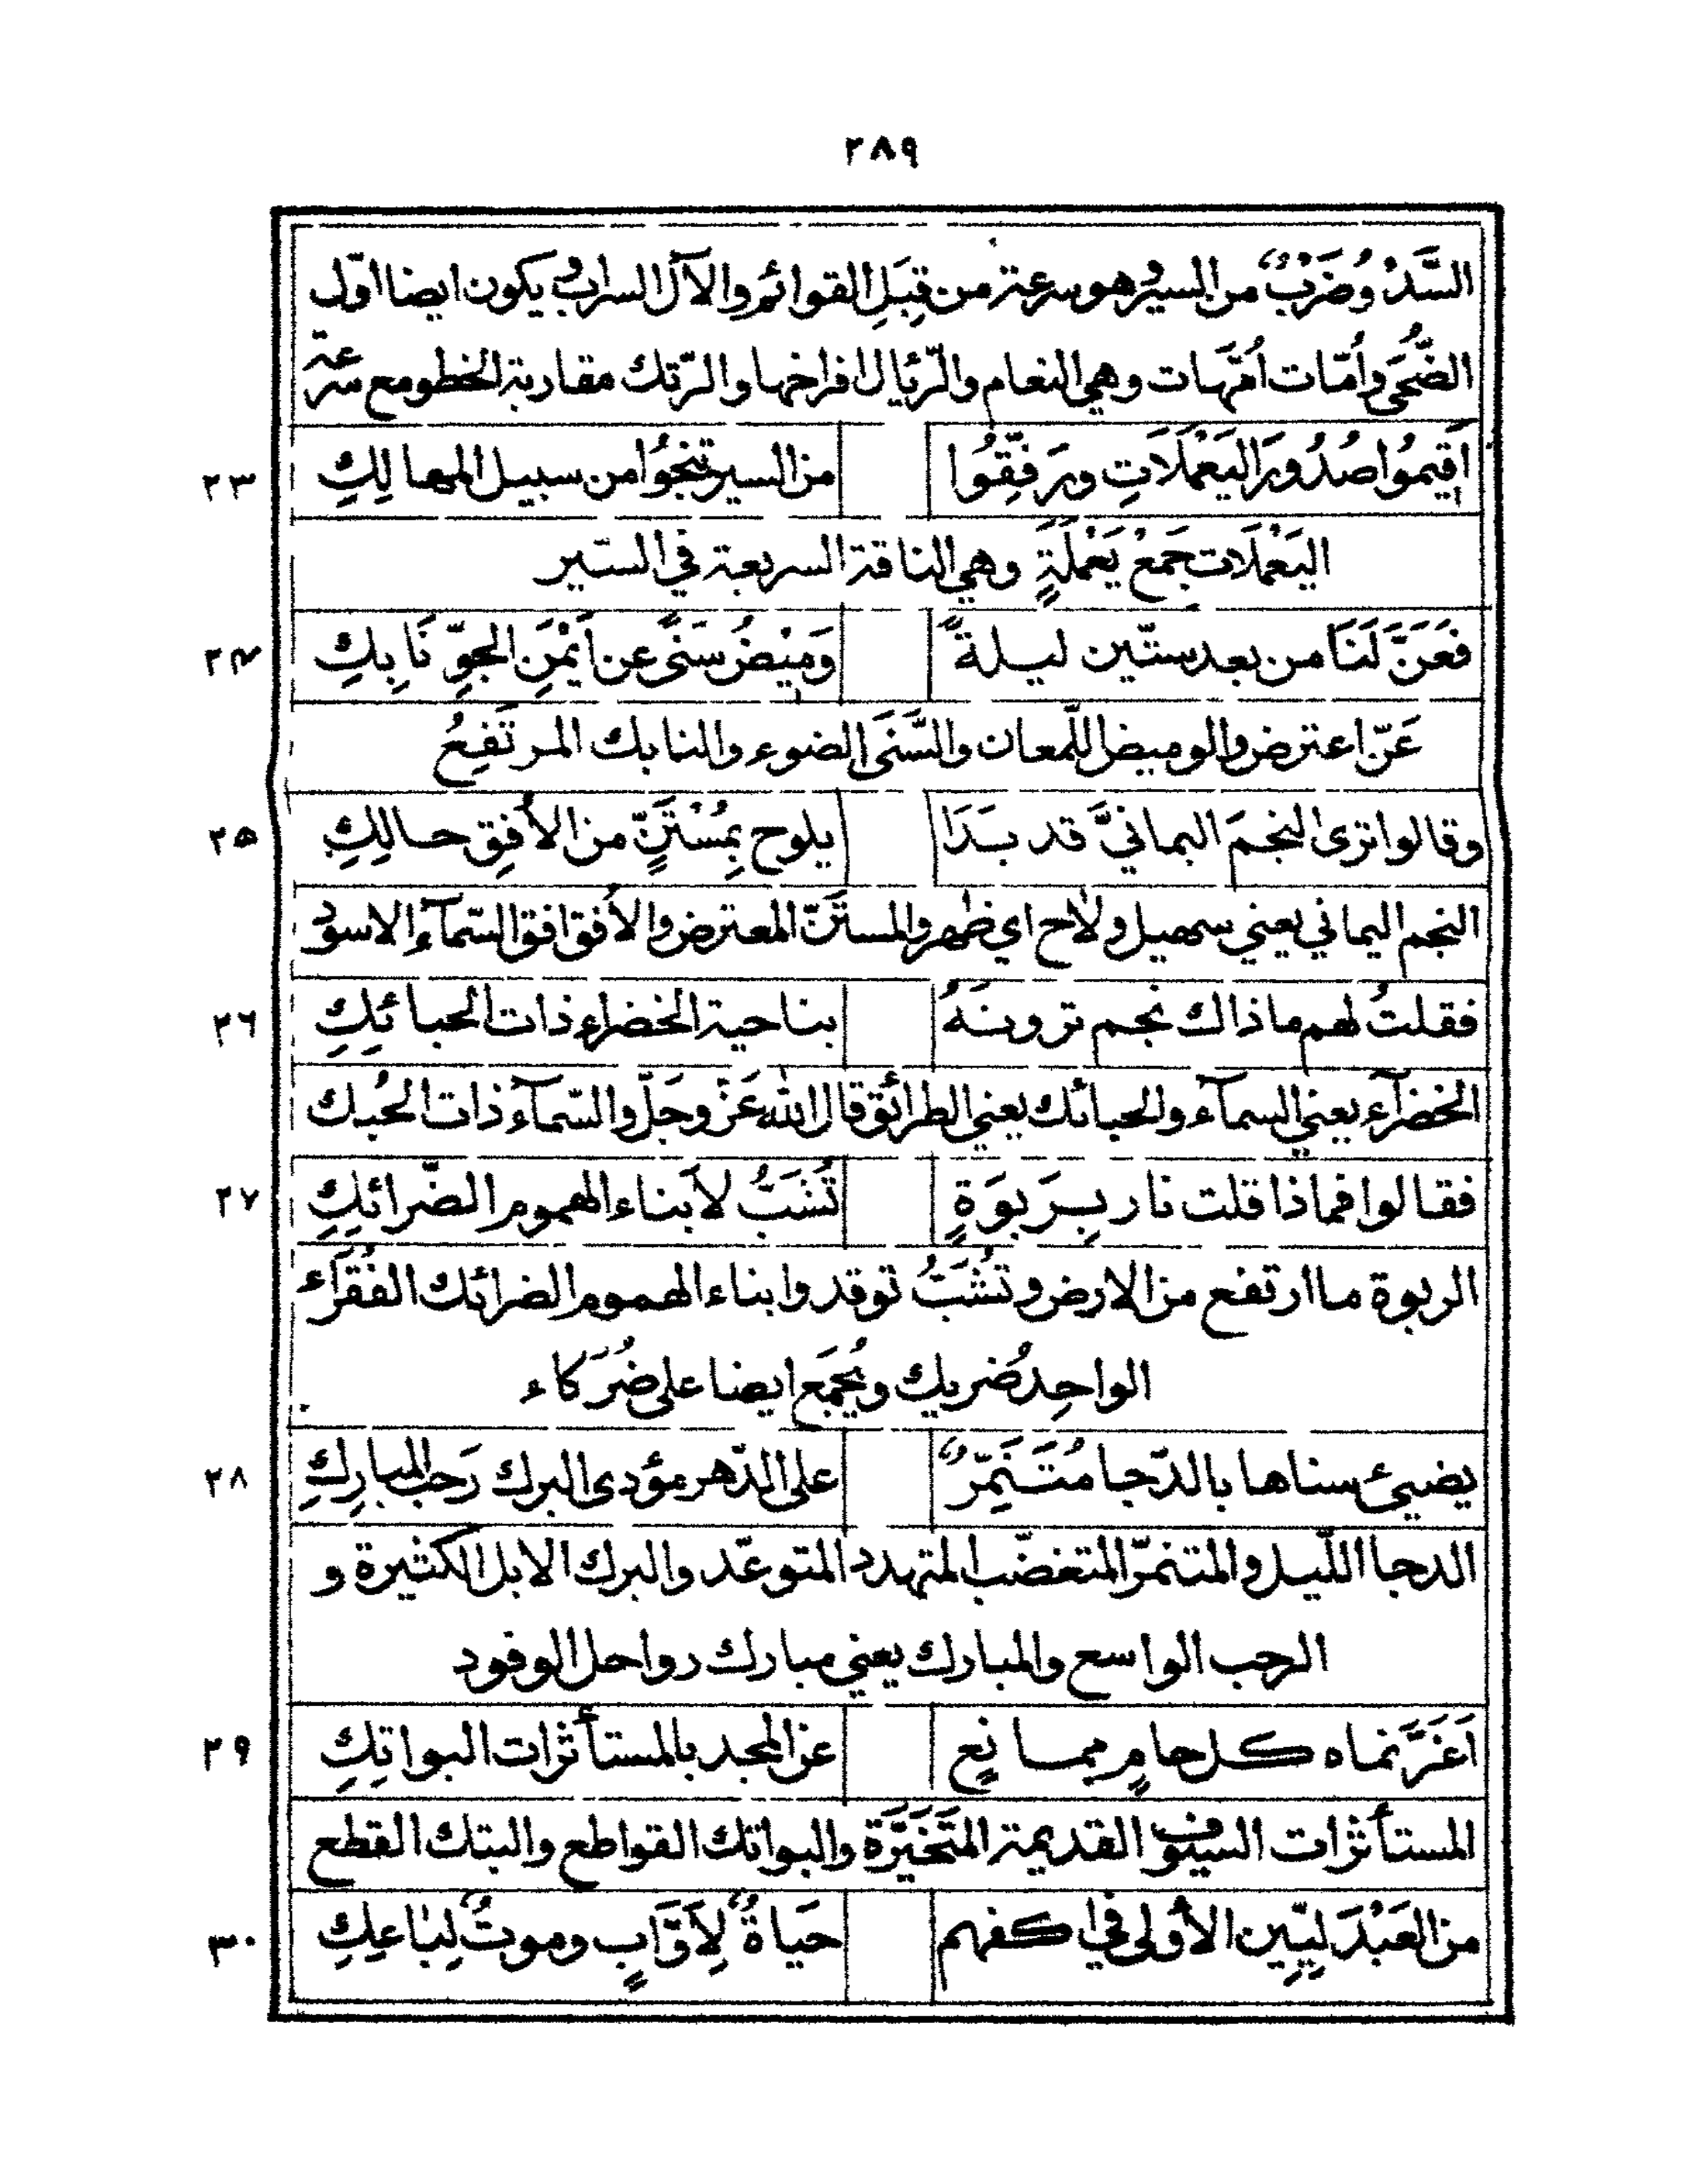 ٢٨٩
السَّدْوُ ضَرْبٌ من السير وهو سرعة من قِبَلِ القوائم والآل السراب ويكون ايضا اوّل
الضُّحَى وأُمّات اُمَّهات وهي النعام والرّئال افراخها والرّتك مقاربة الخطو مع سرعة
اَقِيمُوا صُدُورَ اليَعْمَلَاتِ ورَفِّقُوا من السير تنجُوا من سبيل المهالِكِ ٢٣
اليَعْمَلَات جَمْعُ يَعْمَلَةٍ وهي الناقة السريعة في السّير
فَعَنَّ لَنَا من بعد ستّين ليلةً وَمِيْضُ سَنًى عن اَيْمَنِ الجوِّ نَابِكِ ٢٤
عَنّ اعترض والوميض اللّمعان والسَّنَى الضوء والنابك المرتَفِعُ
وقالوا نرى النجمَ اليمانيَّ قد بَدَا يلوح بِمُسْتَنٍّ من الأفِق حالِكِ ٢٥
النجم اليماني يعني سهيل ولاح اي ظهر والمستَنّ المعترض والأفق افق السّمآء الاسود
فقلتُ لهم ما ذاك نجم ترونَهُ بناحية الخضراء ذات الحبائِكِ ٢٦
الخضرآء يعني السمآء والحبائك يعني الطرائق قال الله عَزّ وجَلّ والسّمآء ذات الحُبك
فقالوا فماذا قلت نار بِرَبوَةٍ تُشَبُّ لأبناء الهموم الضّرائِكِ ٢٧
الربوة ما ارتفع من الارض وتُشَبُّ توقد وابناء الهموم الضرائك الفُقَرآء
الواحِد ضُريك ويُجْمَع ايضا على ضُرَكاء
يضيئ سناها بالدّجا مُتَنَمِّرٌ على الدّهر مؤدى البرك رَحب المبارِكِ ٢٨
الدجا اللّيل والمتنمّر المتغضّب المتهدد المتوعّد والبرك الابل الكثيرة و
الرحب الواسع والمبارك يعني مبارك رواحل الوفود
اَغَرَّ نماه كل حامٍ ممانِع عن المجد بالمستأثرات البواتِكِ ٢٩
المستأثرات السيوف القديمة المتَخَيَّرَة والبواتك القواطع والبتك القطع
من العَبْدَلِيِّين الأولى في اكفهم حَياةٌ لِأَوَّابٍ وموتٌ لِباعِكِ ٣٠